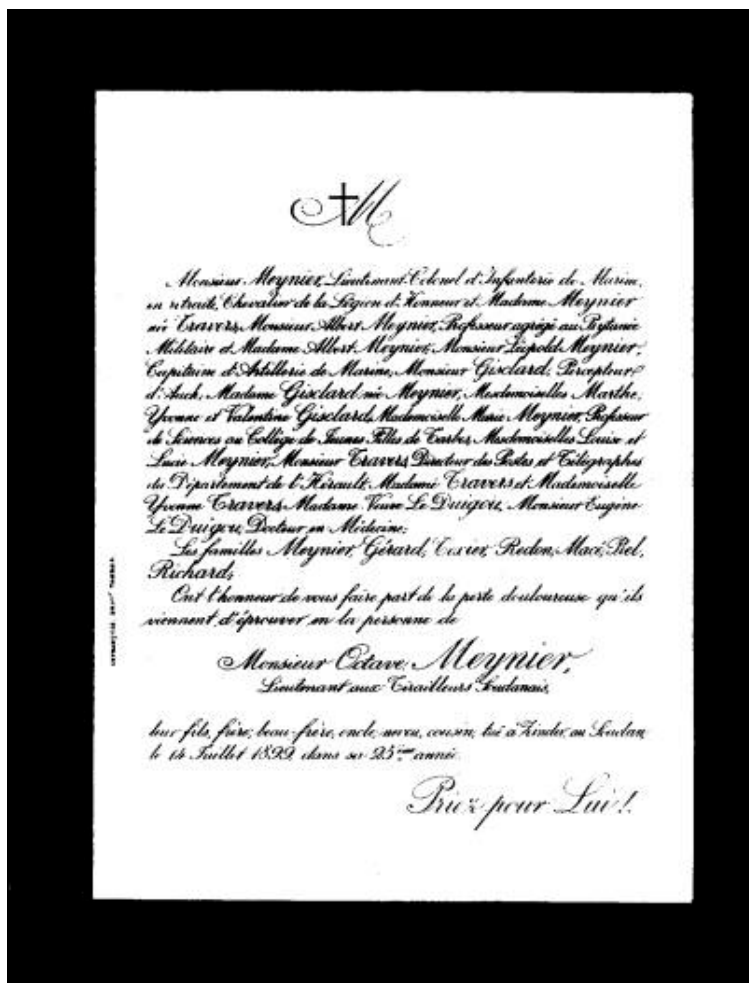 M
Monsieur Meynier, Lieutenant-Colonel d'Infanterie de Marine,
en retraite, Chevalier de la Légion d'Honneur et Madame Meynier
née Travers, Monsieur Albert Meynier, Professeur agrégé au Prytanée
Militaire et Madame Albert Meynier, Monsieur Léopold Meynier,
Capitaine d'Artillerie de Marine, Monsieur Gisclard, Percepteur
d'Auch, Madame Gisclard née Meynier, Mesdemoiselles Marthe,
Yvonne et Valentine Gisclard, Mademoiselle Marie Meynier, Professeur
de Sciences au Collège de Jeunes Filles de Tarbes, Mesdemoiselles Louise et
Lucie Meynier, Monsieur Travers, Directeur des Postes et Télégraphes
du Département de l'Hérault, Madame Travers et Mademoiselle
Yvonne Travers, Madame Veuve Le Duigou, Monsieur Eugène
Le Duigou, Docteur en Médecine;
Les familles Meynier, Gérard, Texier, Redon, Macé, Rel,
Richard,
Ont l'honneur de vous faire part de la perte douloureuse qu'ils
viennent d'éprouver en la personne de
Monsieur Octave Meynier,
Lieutenant aux Tirailleurs Soudanais,
leur fils, frère, beau-frère, oncle, neveu, cousin, tué à Zinder, au Soudan,
le 14 Juillet 1899, dans sa 25ème année.
Priez pour Lui!